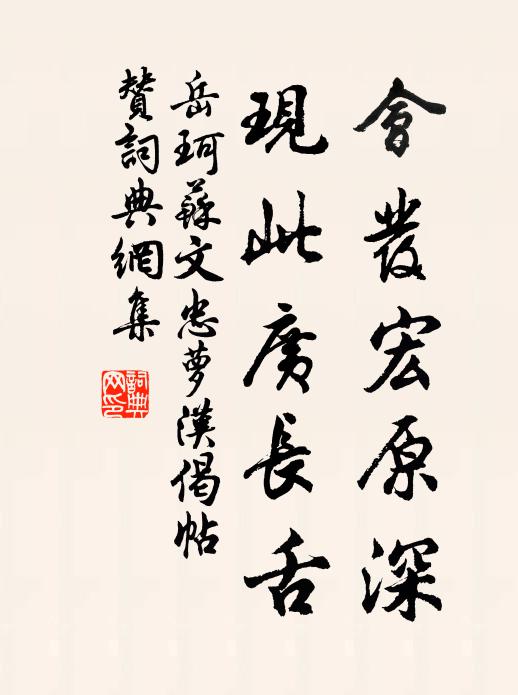 會發宏原深
現此廣長舌
岳珂蘇文忠夢漢偈帖
贊詞典網集
詞典
网印